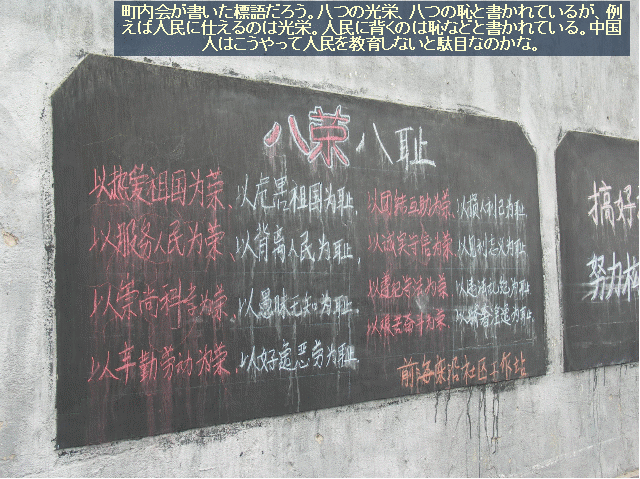 町内会が書いた標語だろう。八つの光栄、八つの恥と書かれているが、例
えば人民に仕えるのは光栄。人民に背くのは恥などと書かれている。中国
人はこうやって人民を教育しないと駄目なのかな。
八荣八耻
以热爱祖国为荣、以危害祖国为耻
以服务人民为荣、以背离人民为耻
以崇尚科学为荣、以愚昧无知为耻
以辛勤劳动为荣、以好逸恶劳为耻
以团结互助为荣、以损人利己为耻
以诚实守信为荣、以见利忘义为耻
以遵纪守法为荣、以违法乱纪为耻
以艰苦奋斗为荣、以骄奢淫逸为耻
社区工作站
搞好
努力